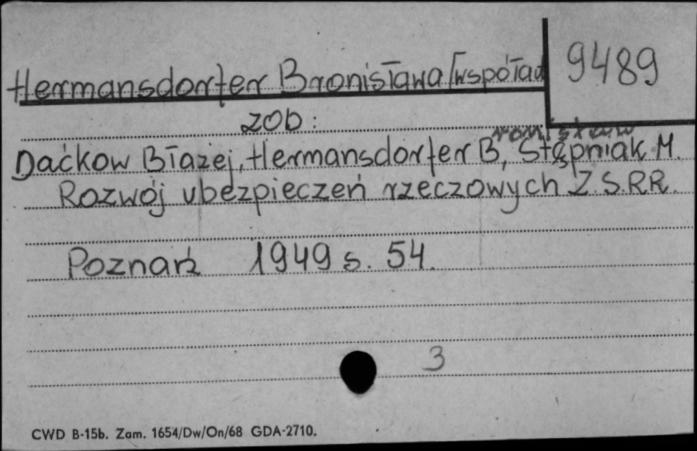 Hermansdorfer Bronisława [współaut
9489
zob:
ronisław
Daćkow Błażej, Hermansdorfer B, Stępniak M.
Rozwój ubezpieczeń rzeczowych Z.S.R.R.
Poznań 1949 s. 54.
3
CWD B-15b. Zam. 1654/Dw/On/68 GDA-2710.